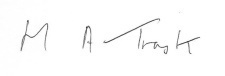 M A Trask